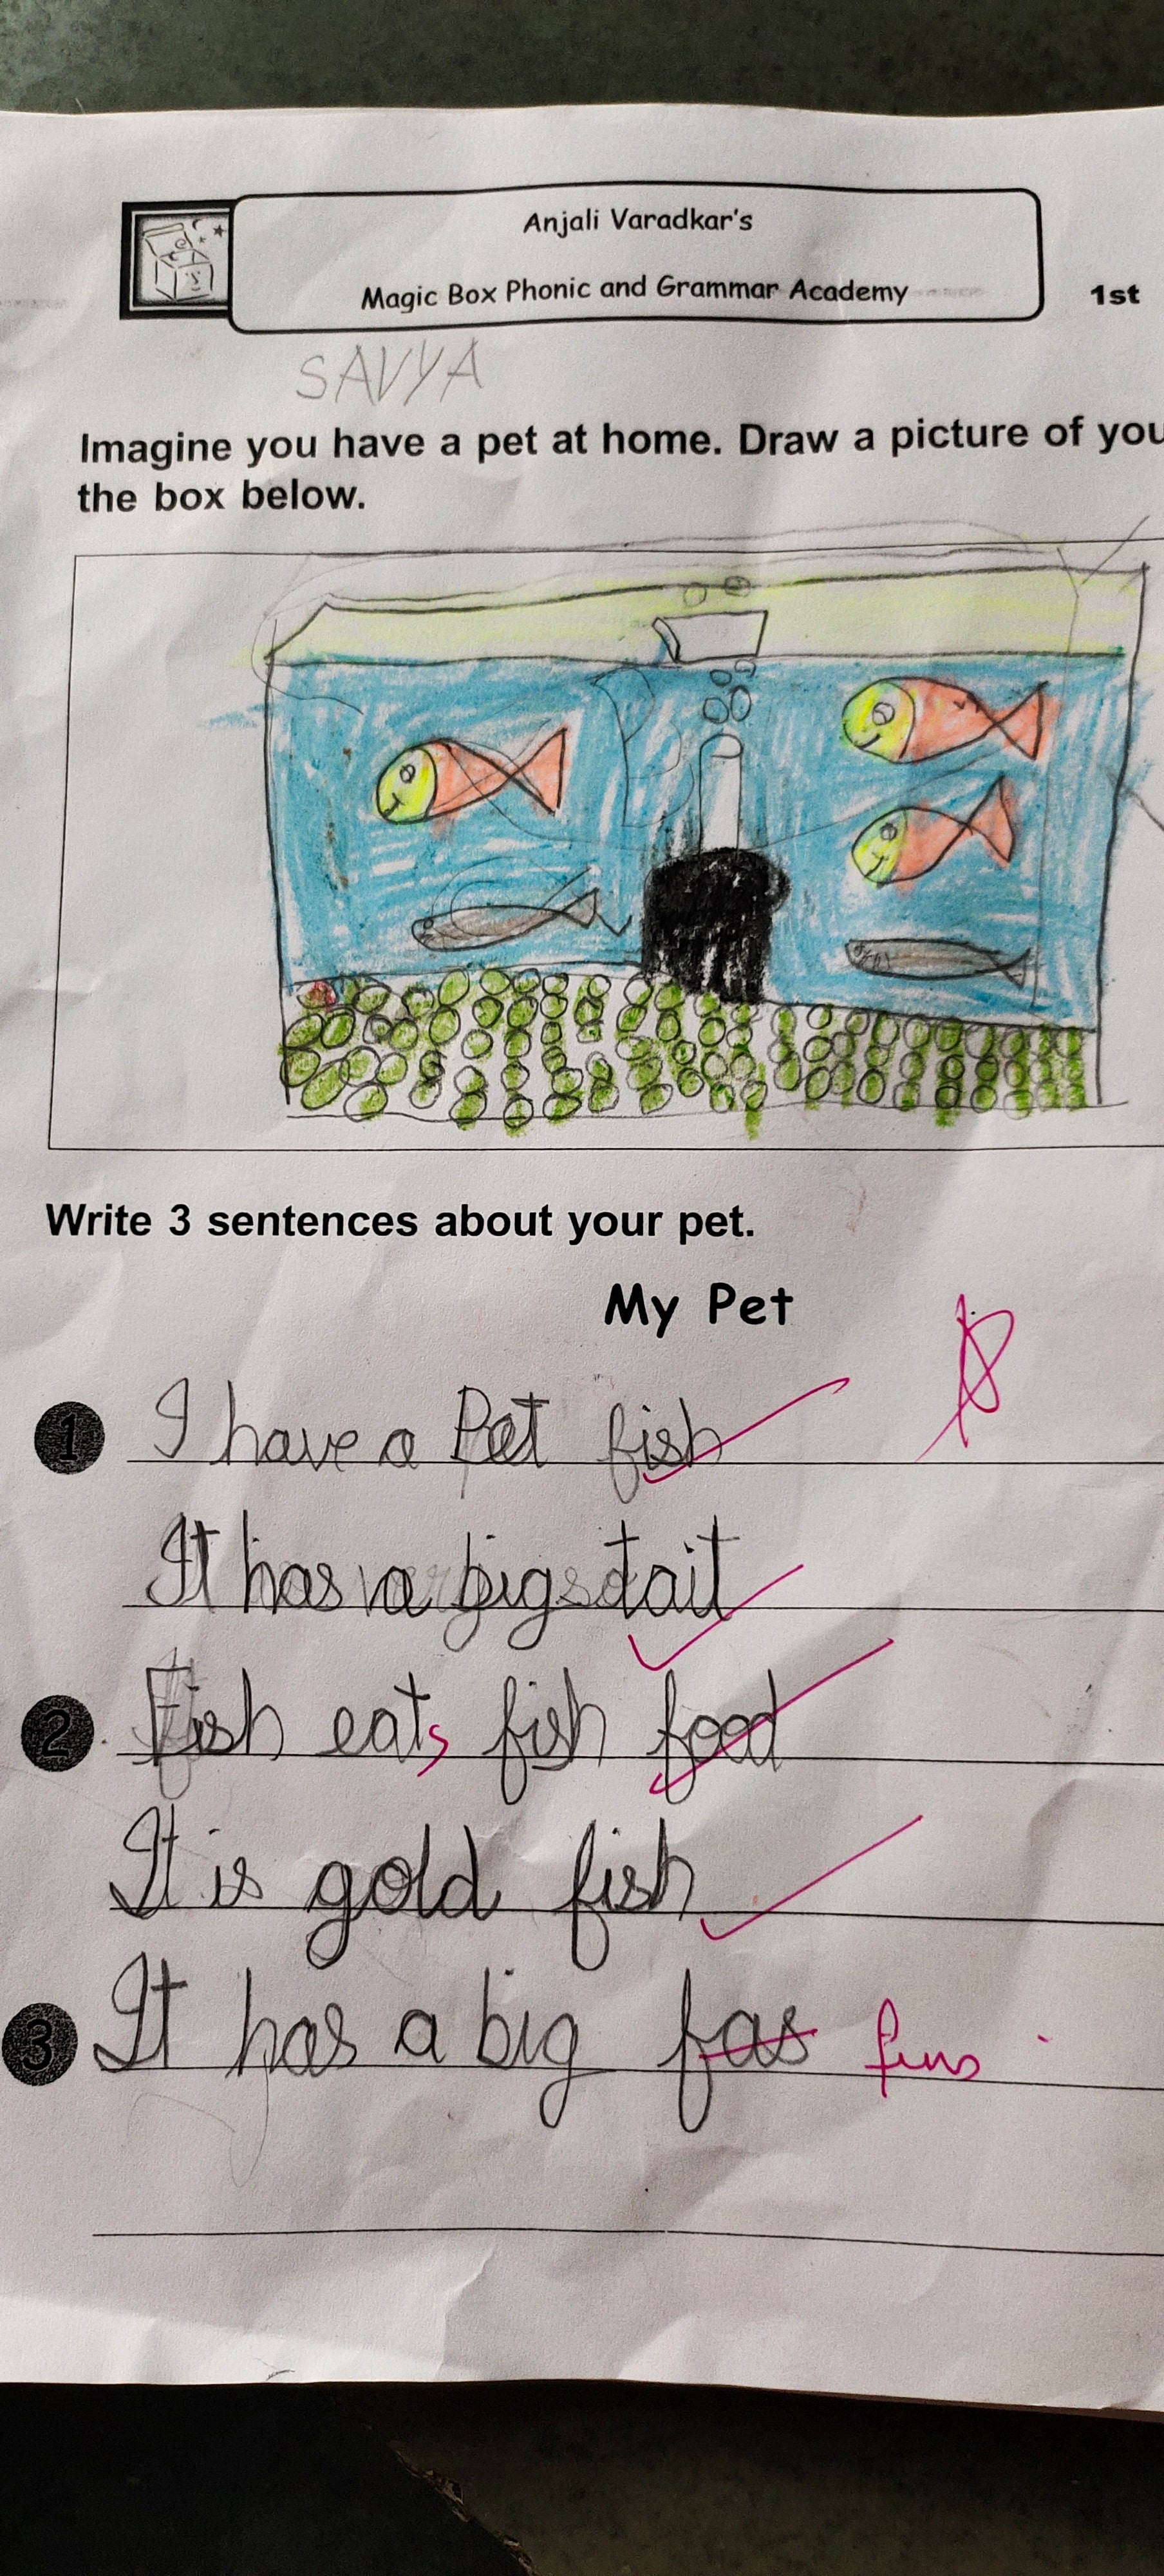 Anjali Varadkar's
Magic Box Phonic and Grammar Academy
1st
SAVYA
Imagine you have a pet at home. Draw a picture of you
the box below.
Write 3 sentences about your pet.
My Pet
1 I have a Pet fish
It has a big tait
2 Fish eats fish food
It is gold fish
3 It has a big fas fins